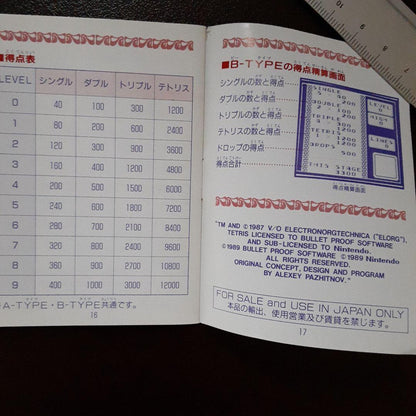 ■得点表
LEVEL シングル ダブル トリプル テトリス
0 40 100 300 1200
1 80 200 600 2400
2 120 300 900 3600
3 160 400 1200 4800
4 200 500 1500 6000
5 240 600 1800 7200
6 280 700 2100 8400
7 320 800 2400 9600
8 360 900 2700 10800
9 400 1000 3000 12000
A-TYPE・B-TYPE共通です。
16
■B-TYPEの得点精算画面
シングルの数と得点
ダブルの数と得点
トリプルの数と得点
テトリスの数と得点
ドロップの得点
得点合計
SINGLE
DOUBLE
TRIPLE
TETRIS
DROPS
THIS STAGE
3300
LEVEL
HIGH
LINES
得点精算画面
"TM AND ©1987 V/O ELECTRONORGTECHNICA ("ELORG")
TETRIS LICENSED TO BULLET PROOF SOFTWARE
AND SUB-LICENSED TO Nintendo.
©1989 BULLET PROOF SOFTWARE ©1989 Nintendo
ALL RIGHTS RESERVED.
ORIGINAL CONCEPT, DESIGN AND PROGRAM
BY ALEXEY PAZHITNOV."
FOR SALE and USE IN JAPAN ONLY
本品の輸出、使用営業及び賃貸を禁じます。
17